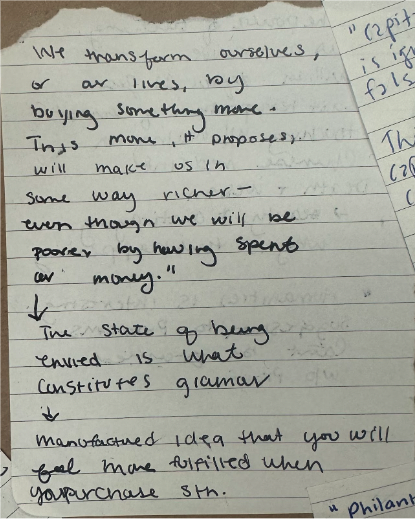 We transform ourselves,
or our lives, by
buying something more.
This more, it proposes,
will make us in
some way richer –
even though we will be
poorer by having spent
our money."
↓
The state of being
envied is what
constitutes glamar
↓
manufactured idea that you will
feel more fulfilled when
you purchase sth.
"Capit
is ig
fals
Th
Cap
"Philant